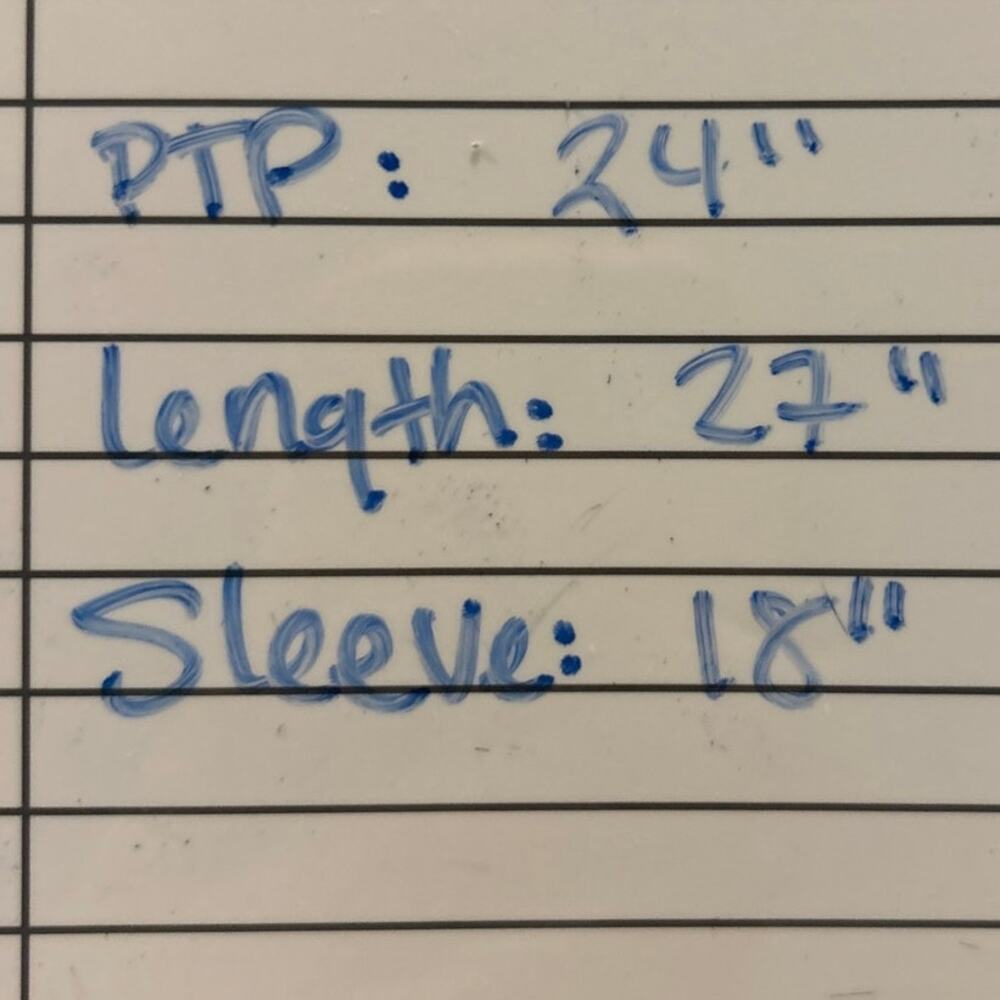 PTP: 24"
Length: 27"
Sleeve: 18"